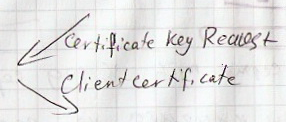 Certificate Key Request
Client certificate